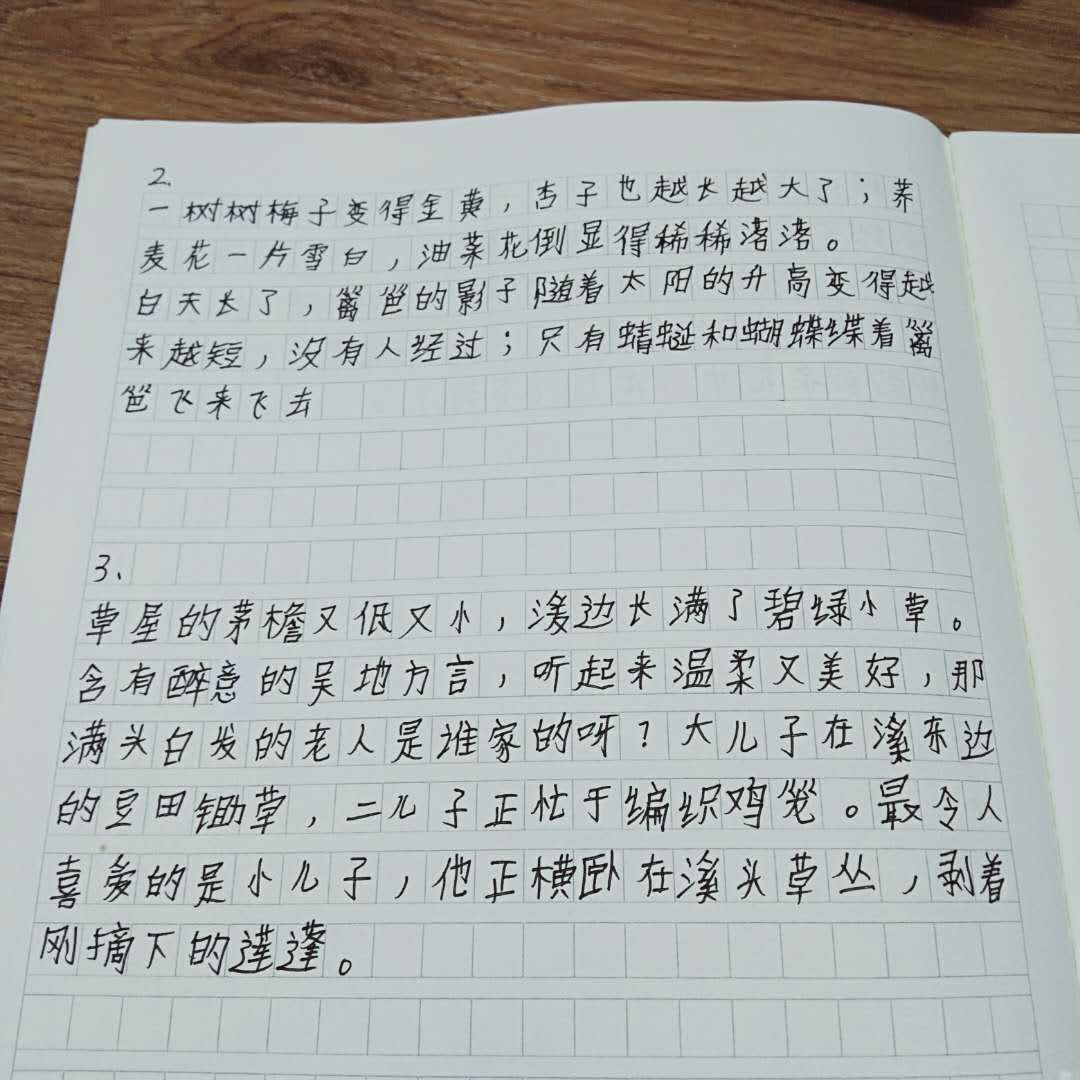 2.
一树树梅子变得金黄，杏子也越长越大了；荞
麦花一片雪白，油菜花倒显得稀稀落落。
白天长了，篱笆的影子随着太阳的升高变得越
来越短，没有人经过；只有蜻蜓和蝴蝶绕着篱
笆飞来飞去
3、
草屋的茅檐又低又小，溪边长满了碧绿小草。
含有醉意的吴地方言，听起来温柔又美好，那
满头白发的老人是谁家的呀？大儿子在溪东边
的豆田锄草，二儿子正忙于编织鸡笼。最令人
喜爱的是小儿子，他正横卧在溪头草丛，剥着
刚摘下的莲蓬。